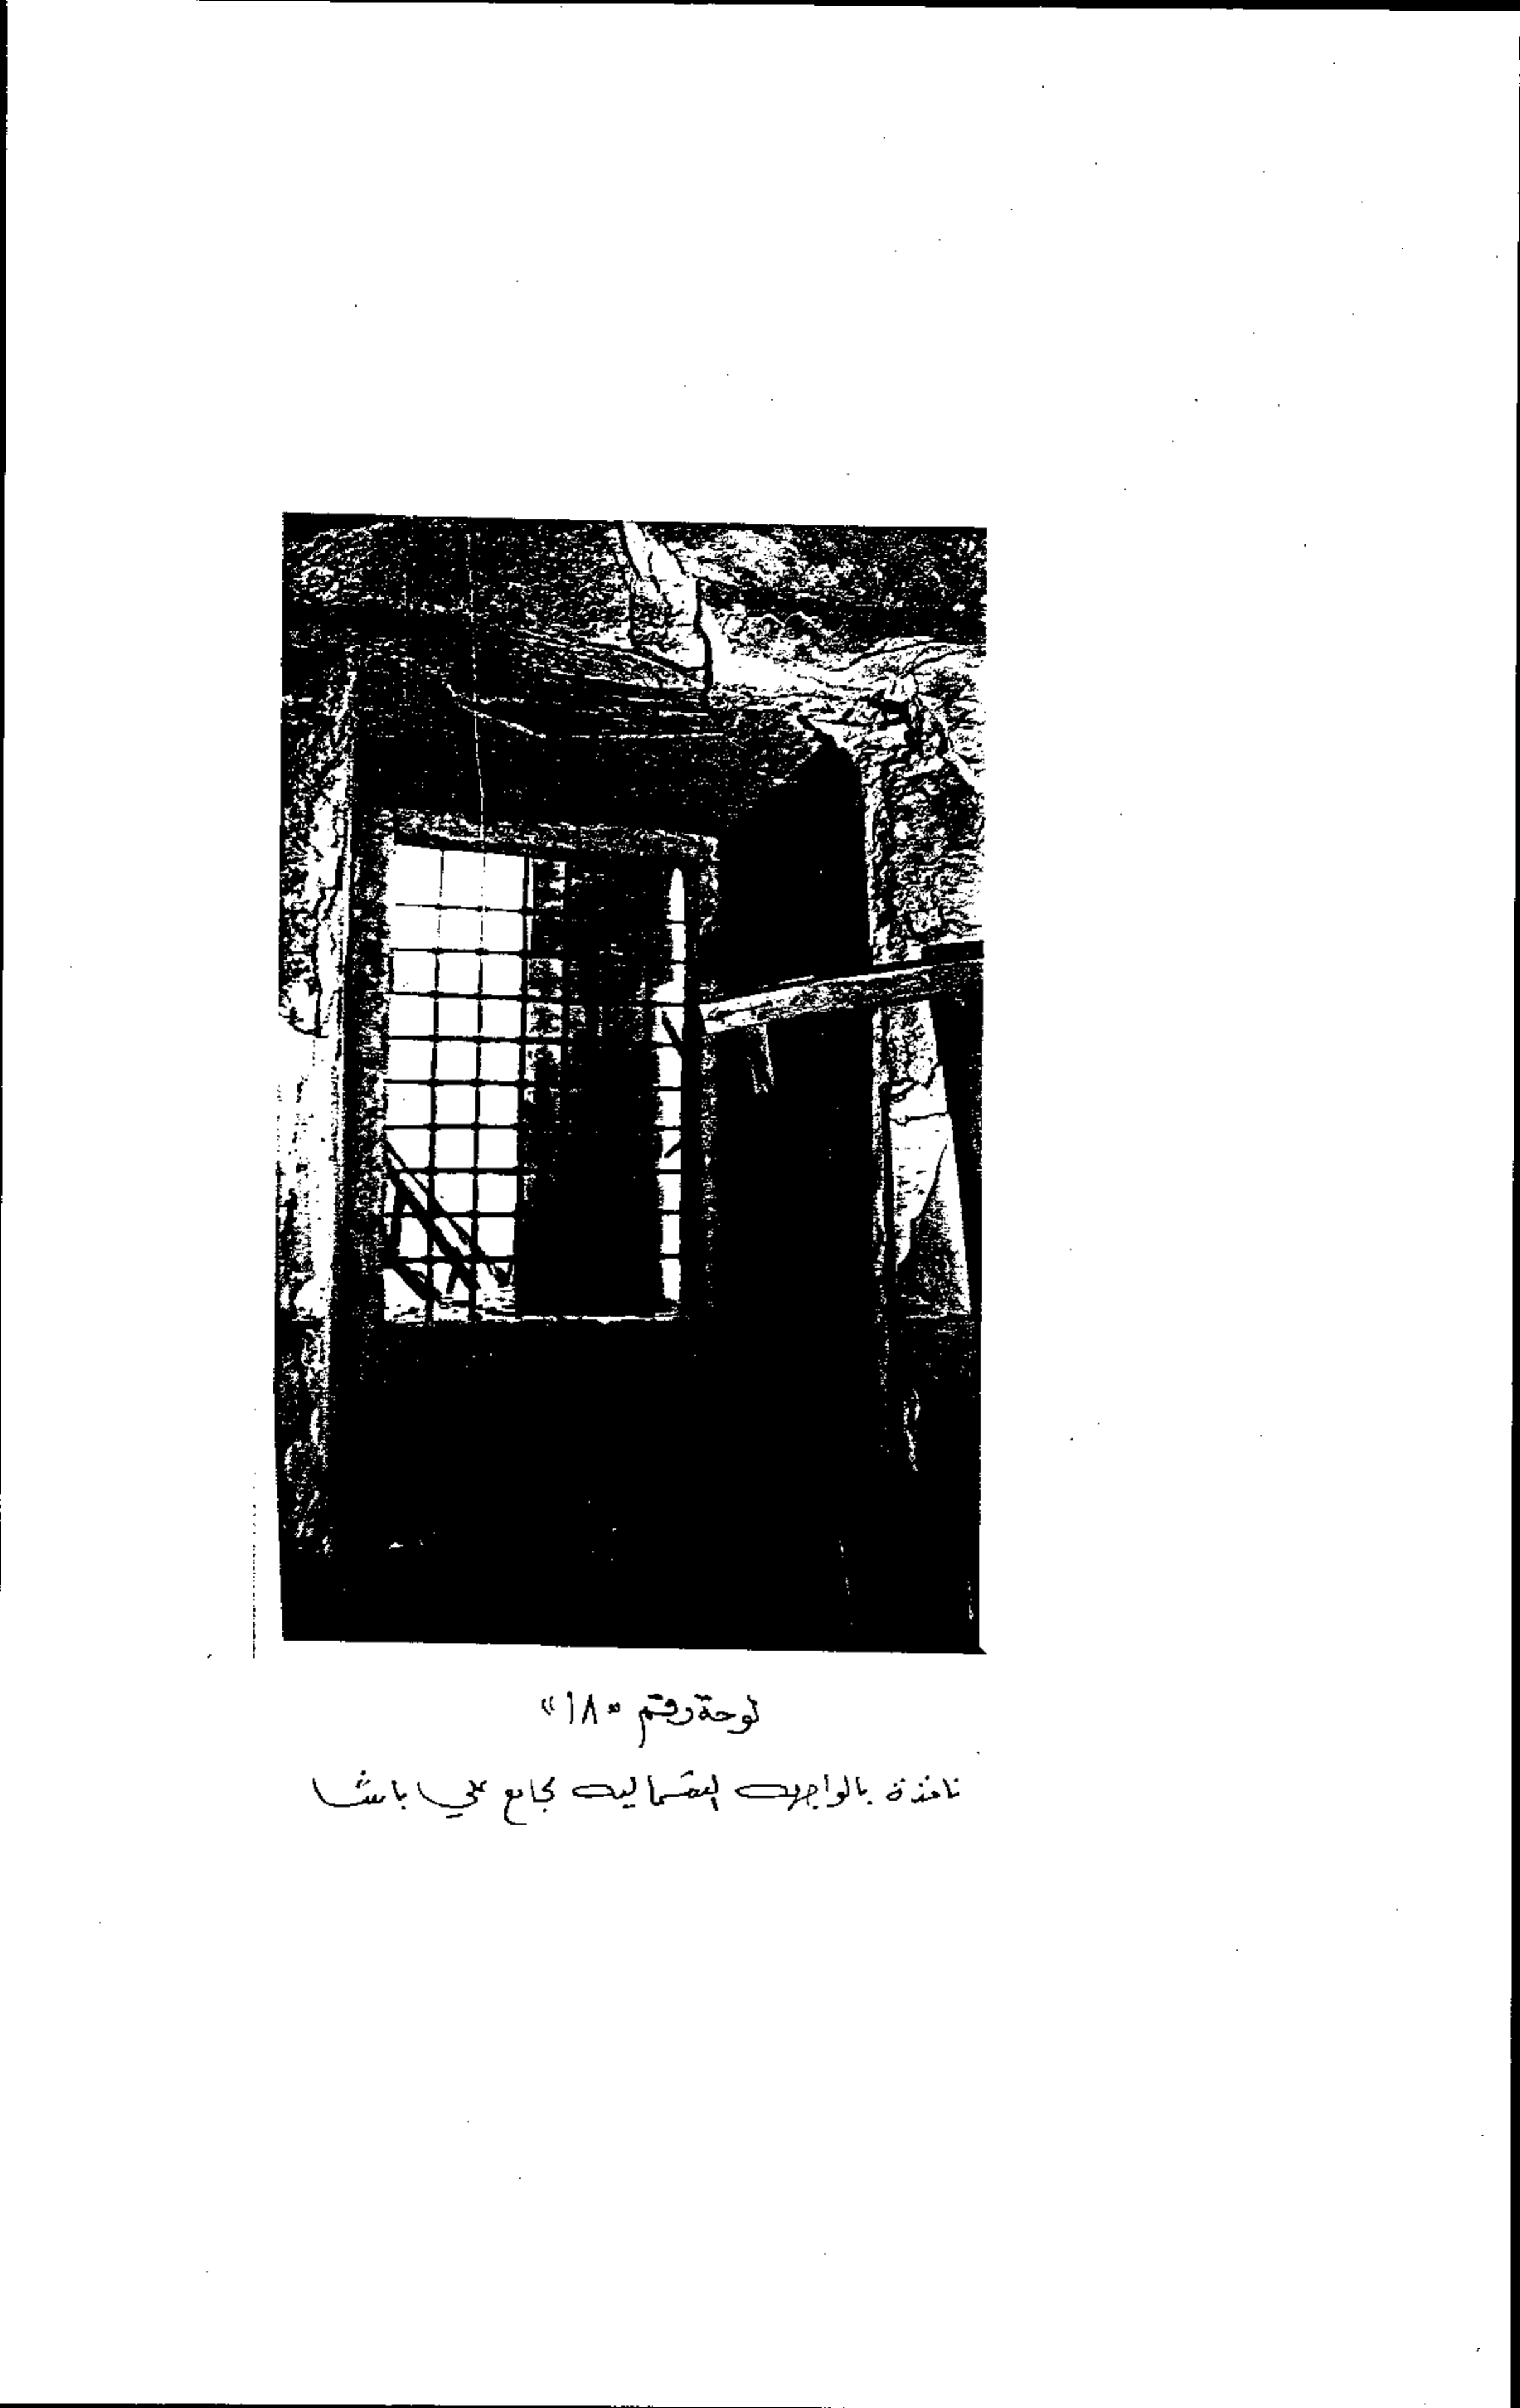 لوحة رقم «١٨»
نافذة بالواجهه الشماليه بجامع علي باشا